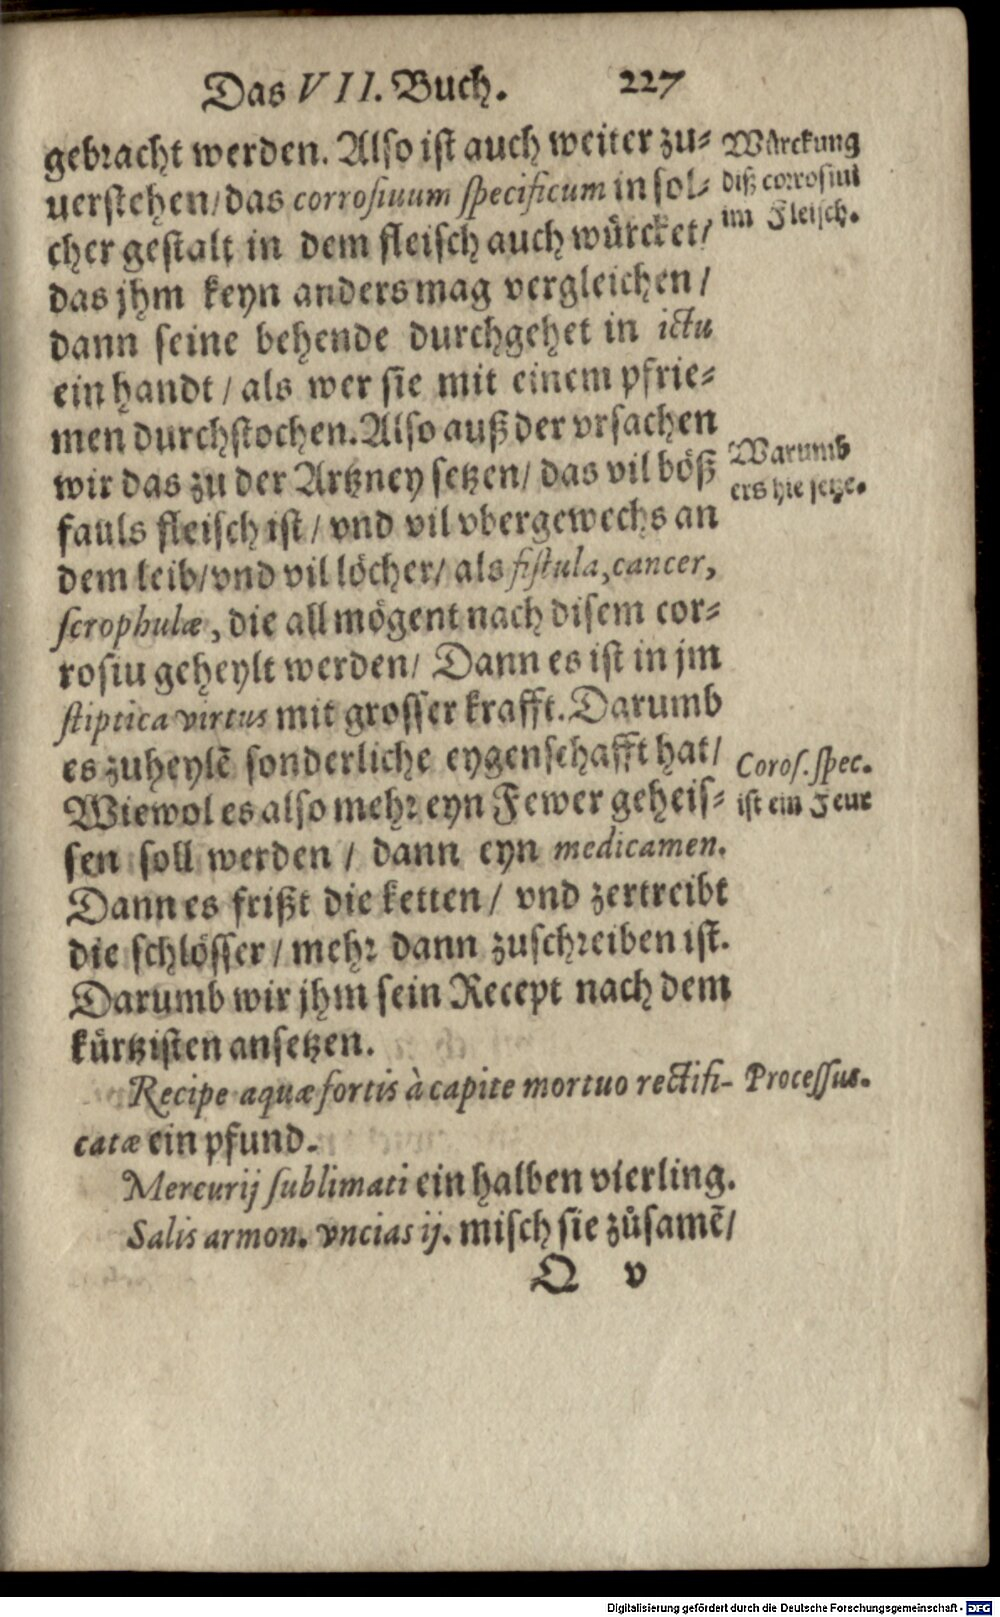 Das VII. Buch. 227
gebracht werden. Also ist auch weiter zu-
uerstehen/das corrosiuum specificum in sol-
cher gestalt in dem fleisch auch würcket/
das jhm keyn anders mag vergleichen/
dann seine behende durchgehet in ictu
ein handt/ als wer sie mit einem pfrie-
men durchstochen. Also auß der vrsachen
wir das zu der Artzney setzen/ das vil böß
fauls fleisch ist/ vnd vil vbergewechs an
dem leib/vnd vil löcher/ als fistula, cancer,
scrophulæ, die all mögent nach disem cor-
rosiu geheylt werden/ Dann es ist in jm
stiptica virtus mit grosser krafft. Darumb
es zuheylē sonderliche eygenschafft hat/
Wiewol es also mehr eyn Fewer geheis-
sen soll werden/ dann eyn medicamen.
Dann es frißt die ketten/ vnd zertreibt
die schlösser/ mehr dann zuschreiben ist.
Darumb wir jhm sein Recept nach dem
kürtzisten ansetzen.
Recipe aquæ fortis à capite mortuo rectifi-
catæ ein pfund.
Mercurij sublimati ein halben vierling.
Salis armon. vncias ij. misch sie zůsamē/
Q v
Würckung
diß corrosiui
im Fleisch.
Warumb
ers hie setze.
Coros. spec.
ist ein Feur
Processus.
Digitalisierung gefördert durch die Deutsche Forschungsgemeinschaft - DFG